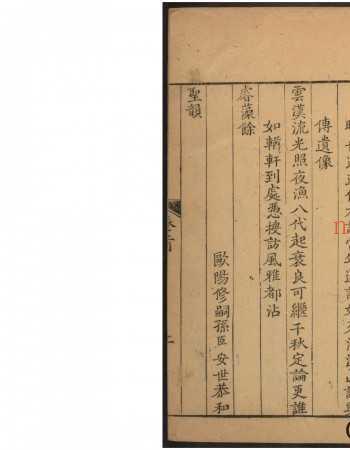 傳遺像
雲漢流光照夜漁八代起衰良可繼千秋定論更誰
如輶軒到處憑搜訪風雅都沾
睿藻餘
歐陽修嗣孫臣安世恭和
聖韻